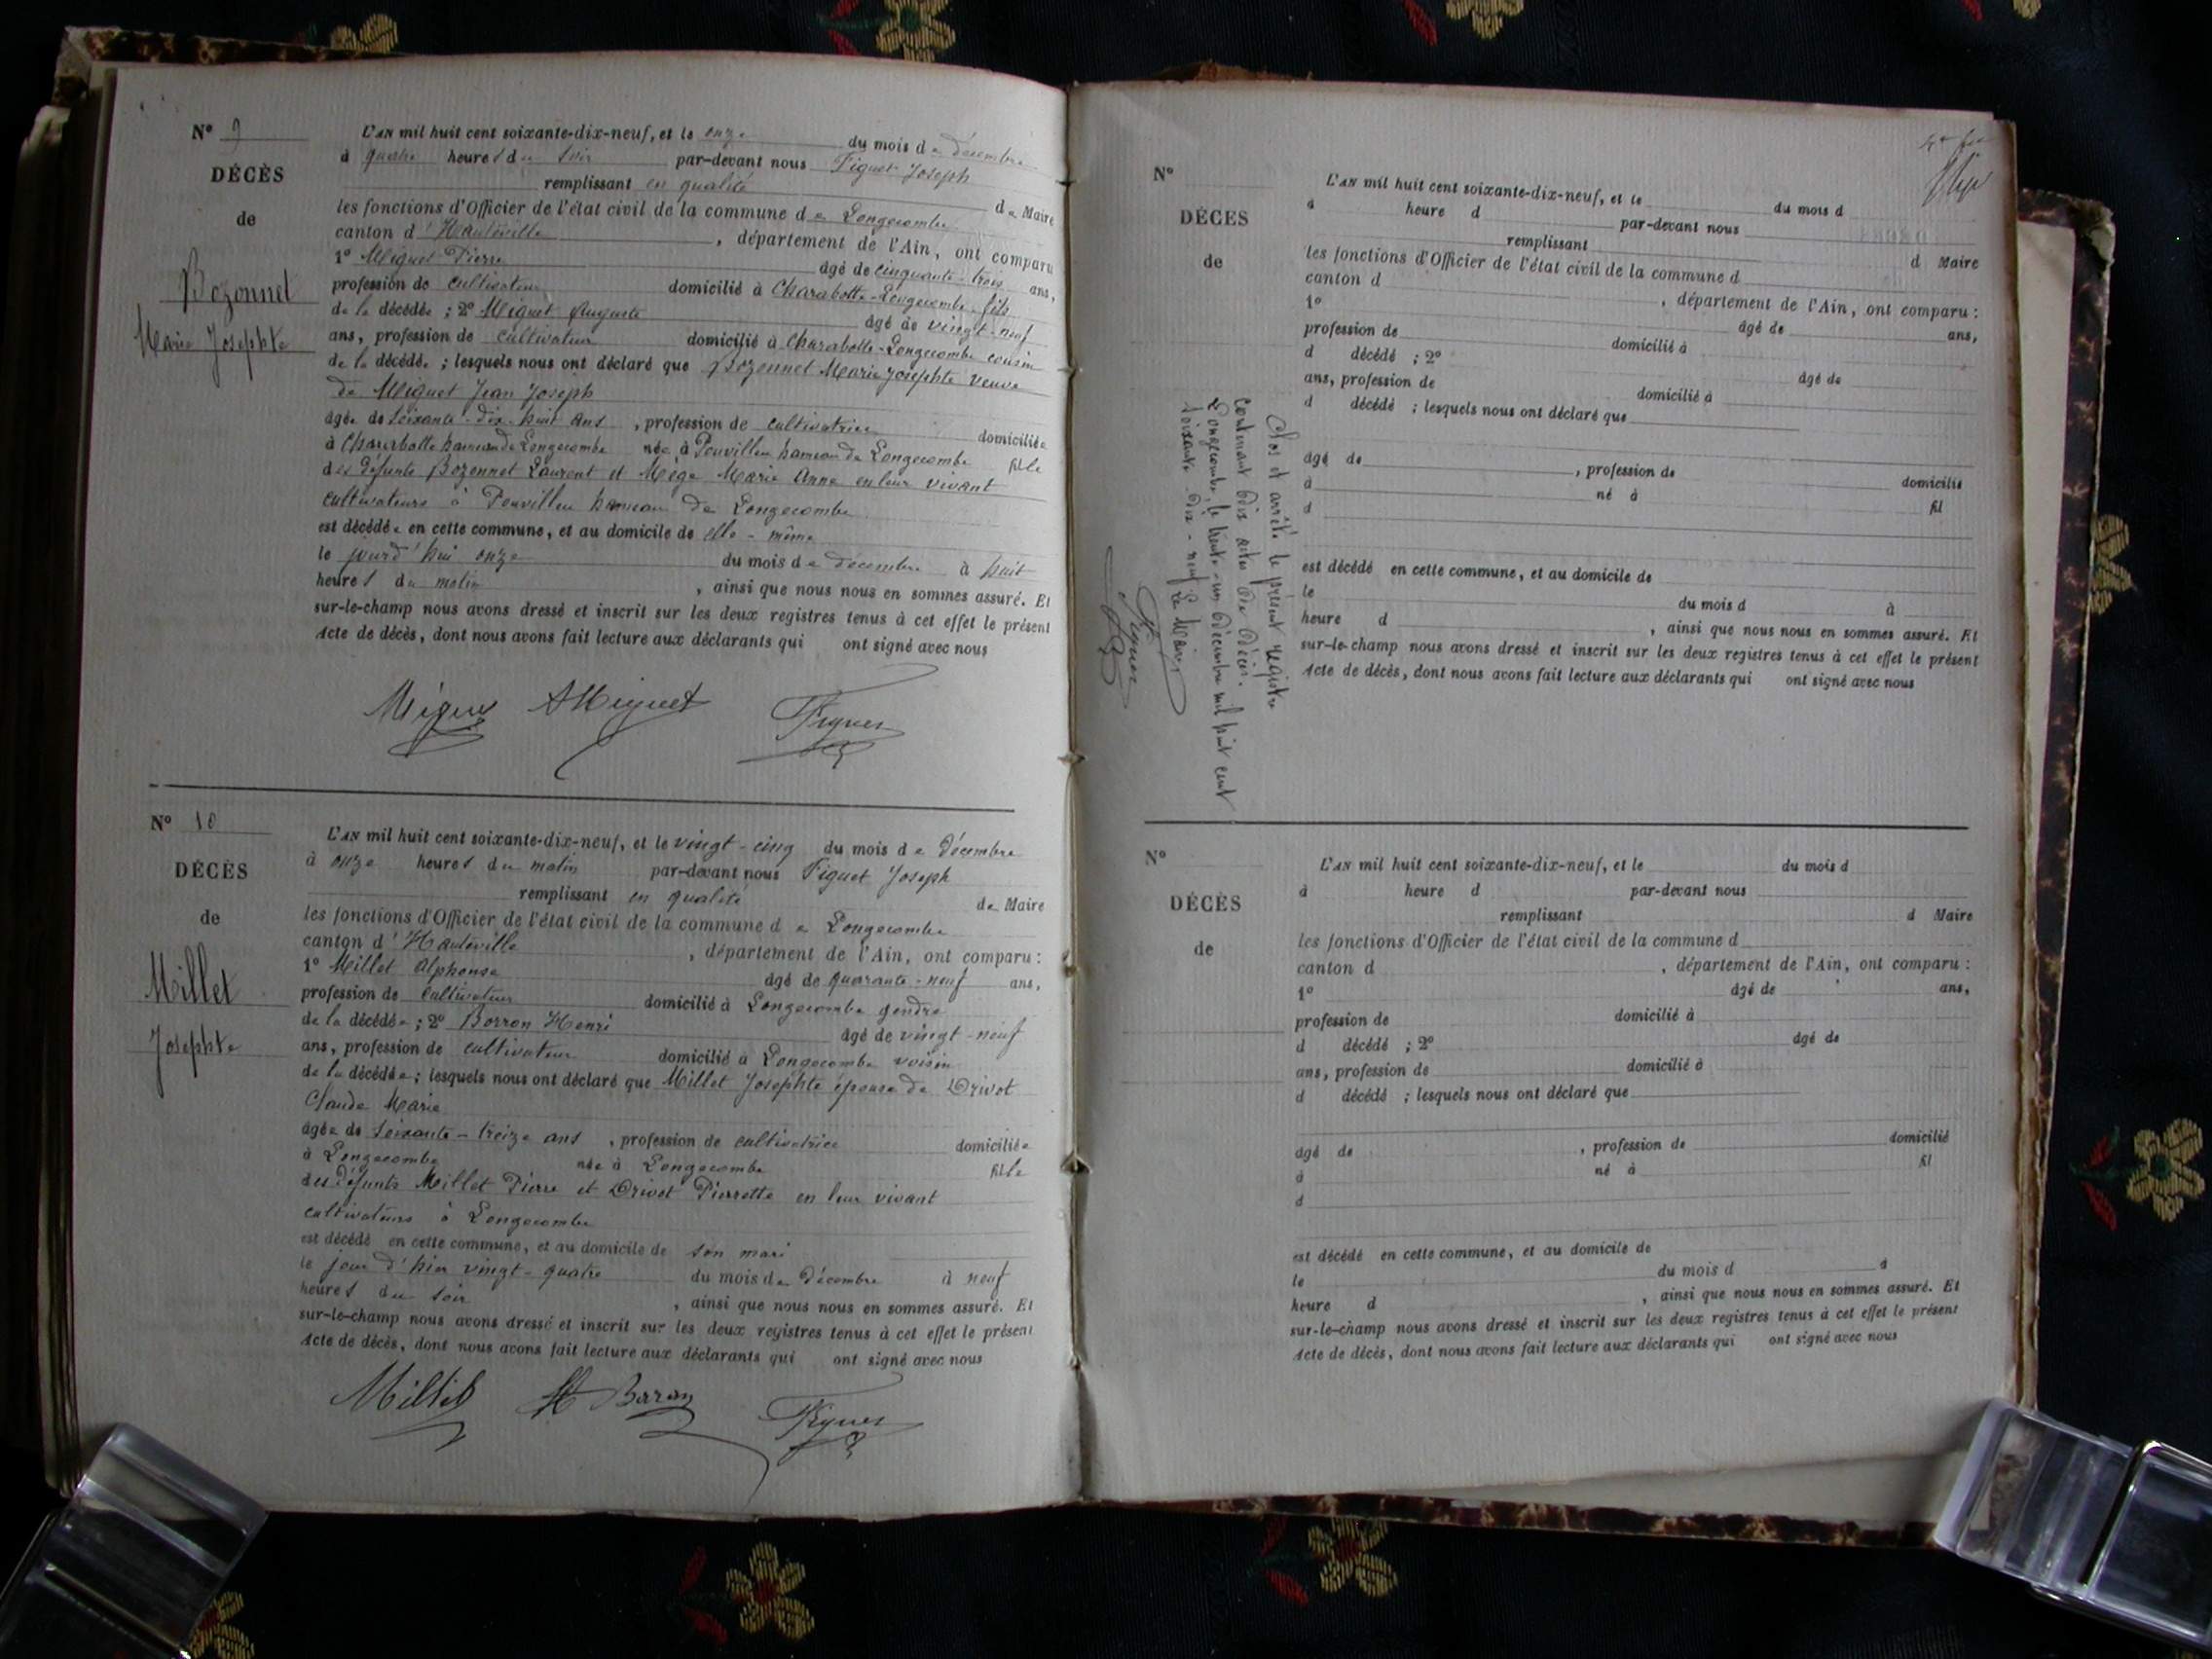 N° 9
DÉCÈS
de
Bozonnet
Marie Josephte
L'AN mil huit cent soixante-dix-neuf, et le onze du mois de décembre
à quatre heures du soir par-devant nous Figuet Joseph
remplissant en qualité de Maire
les fonctions d'Officier de l'état civil de la commune de Longecombe
canton d'Hauteville, département de l'Ain, ont comparu
1° Miguet Pierre âgé de cinquante-trois ans,
profession de cultivateur domicilié à Charabotte-Longecombe fils
de la décédée ; 2° Miguet Auguste âgé de vingt-neuf
ans, profession de cultivateur domicilié à Charabotte-Longecombe cousin
de la décédée ; lesquels nous ont déclaré que Bozonnet Marie Josephte veuve
de Miguet Jean Joseph
âgée de soixante-dix-huit ans, profession de cultivatrice domiciliée
à Charabotte hameau de Longecombe née à Pouvillieu hameau de Longecombe fille
des défunts Bozonnet Laurent et Mège Marie Anne en leur vivant
cultivateurs à Pouvillieu hameau de Longecombe
est décédée en cette commune, et au domicile de elle-même
le jourd'hui onze du mois de décembre à huit
heures du matin, ainsi que nous nous en sommes assuré. Et
sur-le-champ nous avons dressé et inscrit sur les deux registres tenus à cet effet le présent
Acte de décès, dont nous avons fait lecture aux déclarants qui ont signé avec nous
Miguet AMiguet Figuet
N° 10
DÉCÈS
de
Millet
Josephte
L'AN mil huit cent soixante-dix-neuf, et le vingt-cinq du mois de décembre
à onze heures du matin par-devant nous Figuet Joseph
remplissant en qualité de Maire
les fonctions d'Officier de l'état civil de la commune de Longecombe
canton d'Hauteville, département de l'Ain, ont comparu :
1° Millet Alphonse âgé de quarante-neuf ans,
profession de cultivateur domicilié à Longecombe gendre
de la décédée ; 2° Borron Henri âgé de vingt-neuf
ans, profession de cultivateur domicilié à Longecombe voisin
de la décédée ; lesquels nous ont déclaré que Millet Josephte épouse de Drivot
Claude Marie
âgée de soixante-treize ans, profession de cultivatrice domiciliée
à Longecombe née à Longecombe fille
des défunts Millet Pierre et Drivot Pierrette en leur vivant
cultivateurs à Longecombe
est décédé en cette commune, et au domicile de son mari
le jour d'hier vingt-quatre du mois de décembre à neuf
heures du soir, ainsi que nous nous en sommes assuré. Et
sur-le-champ nous avons dressé et inscrit sur les deux registres tenus à cet effet le présent
Acte de décès, dont nous avons fait lecture aux déclarants qui ont signé avec nous
Millet H Baron Figuet
N°
DÉCES
de
L'AN mil huit cent soixante-dix-neuf, et le du mois d
à heure d par-devant nous
remplissant d Maire
les fonctions d'Officier de l'état civil de la commune d
canton d , département de l'Ain, ont comparu :
1° âgé de ans,
profession de domicilié à
d décédé ; 2° âgé de
ans, profession de domicilié à
d décédé ; lesquels nous ont déclaré que
âgé de , profession de domicilié
à né à fil
d
est décédé en cette commune, et au domicile de
le du mois d à
heure d , ainsi que nous nous en sommes assuré. Et
sur-le-champ nous avons dressé et inscrit sur les deux registres tenus à cet effet le présent
Acte de décès, dont nous avons fait lecture aux déclarants qui ont signé avec nous
Clos et arrêté le présent registre
contenant dix actes de décès.
Longecombe, le trente-un décembre mil huit cent
soixante-dix-neuf Le Maire,
Figuet
N°
DÉCÈS
de
L'AN mil huit cent soixante-dix-neuf, et le du mois d
à heure d par-devant nous
remplissant d Maire
les fonctions d'Officier de l'état civil de la commune d
canton d , département de l'Ain, ont comparu :
1° âgé de ans,
profession de domicilié à
d décédé ; 2° âgé de
ans, profession de domicilié à
d décédé ; lesquels nous ont déclaré que
âgé de , profession de domicilié
à né à fil
d
est décédé en cette commune, et au domicile de
le du mois d à
heure d , ainsi que nous nous en sommes assuré. Et
sur-le-champ nous avons dressé et inscrit sur les deux registres tenus à cet effet le présent
Acte de décès, dont nous avons fait lecture aux déclarants qui ont signé avec nous